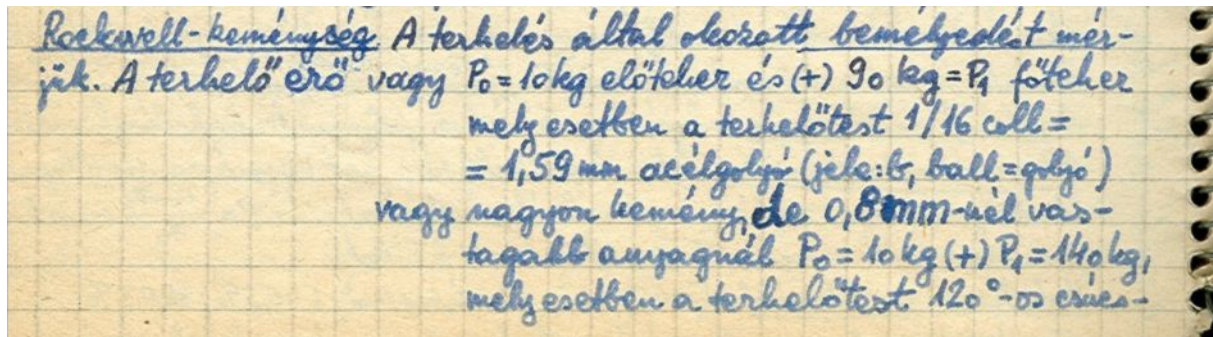 Rockwell-keménység A terhelés által okozott bemélyedést mér-
jük. A terhelő erő vagy P₀=10kg előteher és (+) 90 kg=P₁ főteher
mely esetben a terhelőtest 1/16 coll=
= 1,59 mm acélgolyó (jele:b, ball=golyó)
vagy nagyon kemény, de 0,8mm-nél vas-
tagabb anyagnál P₀=10kg (+) P₁=140kg,
mely esetben a terhelőtest 120°-os csúcs-